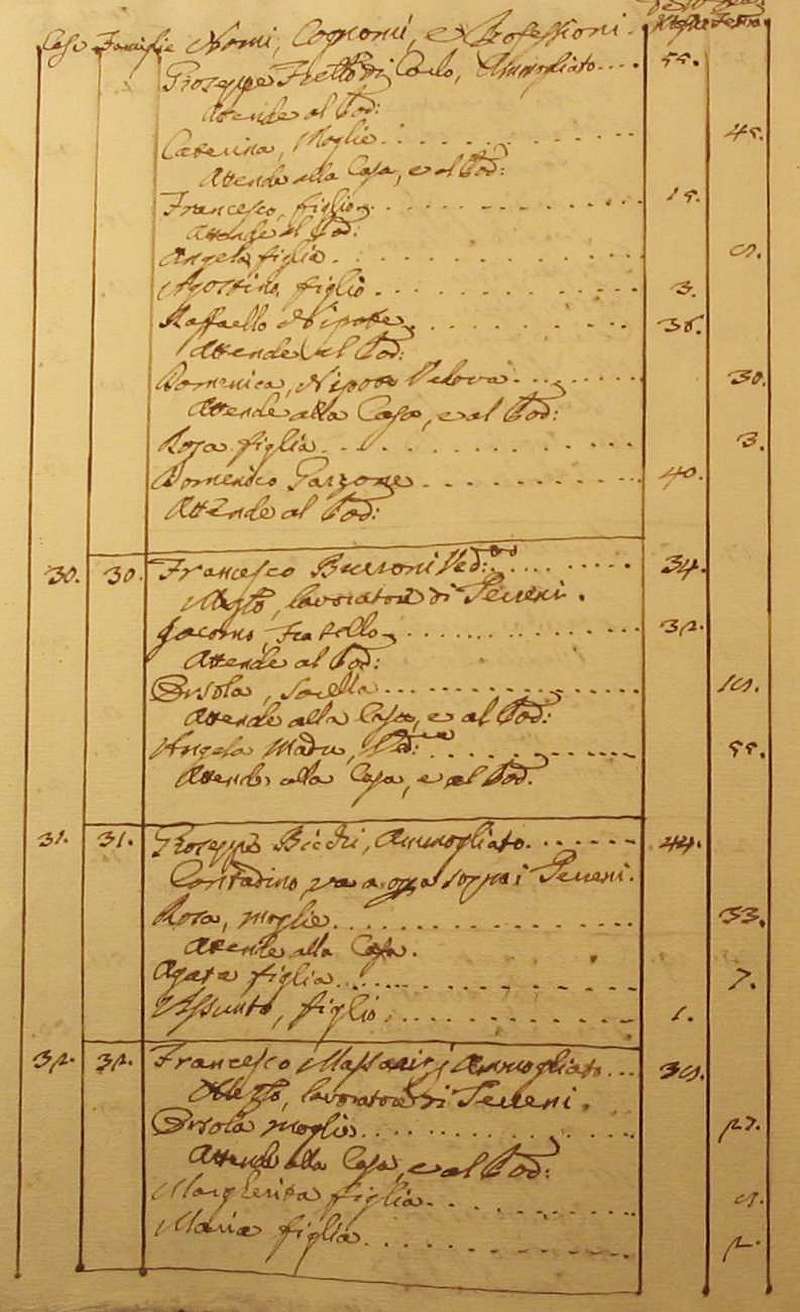 Case Famiglie Nomi, Cognomi, e Professioni.
Gioseppe di Carlo, Ammogliato.... 55.
Attende al Pod:
Caterina, Moglie 45.
Attende alla Casa, e al Pod:
Francesco, figlio 15.
Attende al Pod:
Angela figlia 9.
Agostino figlio 3.
Raffaello Nipote 36.
Attende al Pod:
Domenica, Nipote Vedova 30.
Attende alla Casa, e al Pod:
Rosa figlia 3.
Domenico Garzone 40.
Attende al Pod:
30. 30. Francesco Ved:vo 34.
lavoratore di Terreni.
Giacomo, Fratello 32.
Attende al Pod:
Orsola, Sorella 19.
Attende alla Casa, e al Pod:
Angela Madre, Ved:va 55.
Attende alla Casa, e al Pod.
31. 31. Gioseppe Ammogliato 44.
Contadino va a opra sopra i Terreni.
Rosa, moglie 33.
Attende alla Casa.
Agata figlia 7.
Assunto, figlio 1.
32. 32. Francesco Ammogliato... 39.
lavoratore di Terreni.
Orsola moglie 27.
Attende alla Casa, e al Pod:
Margherita figlia 9.
Maria figlia 2.